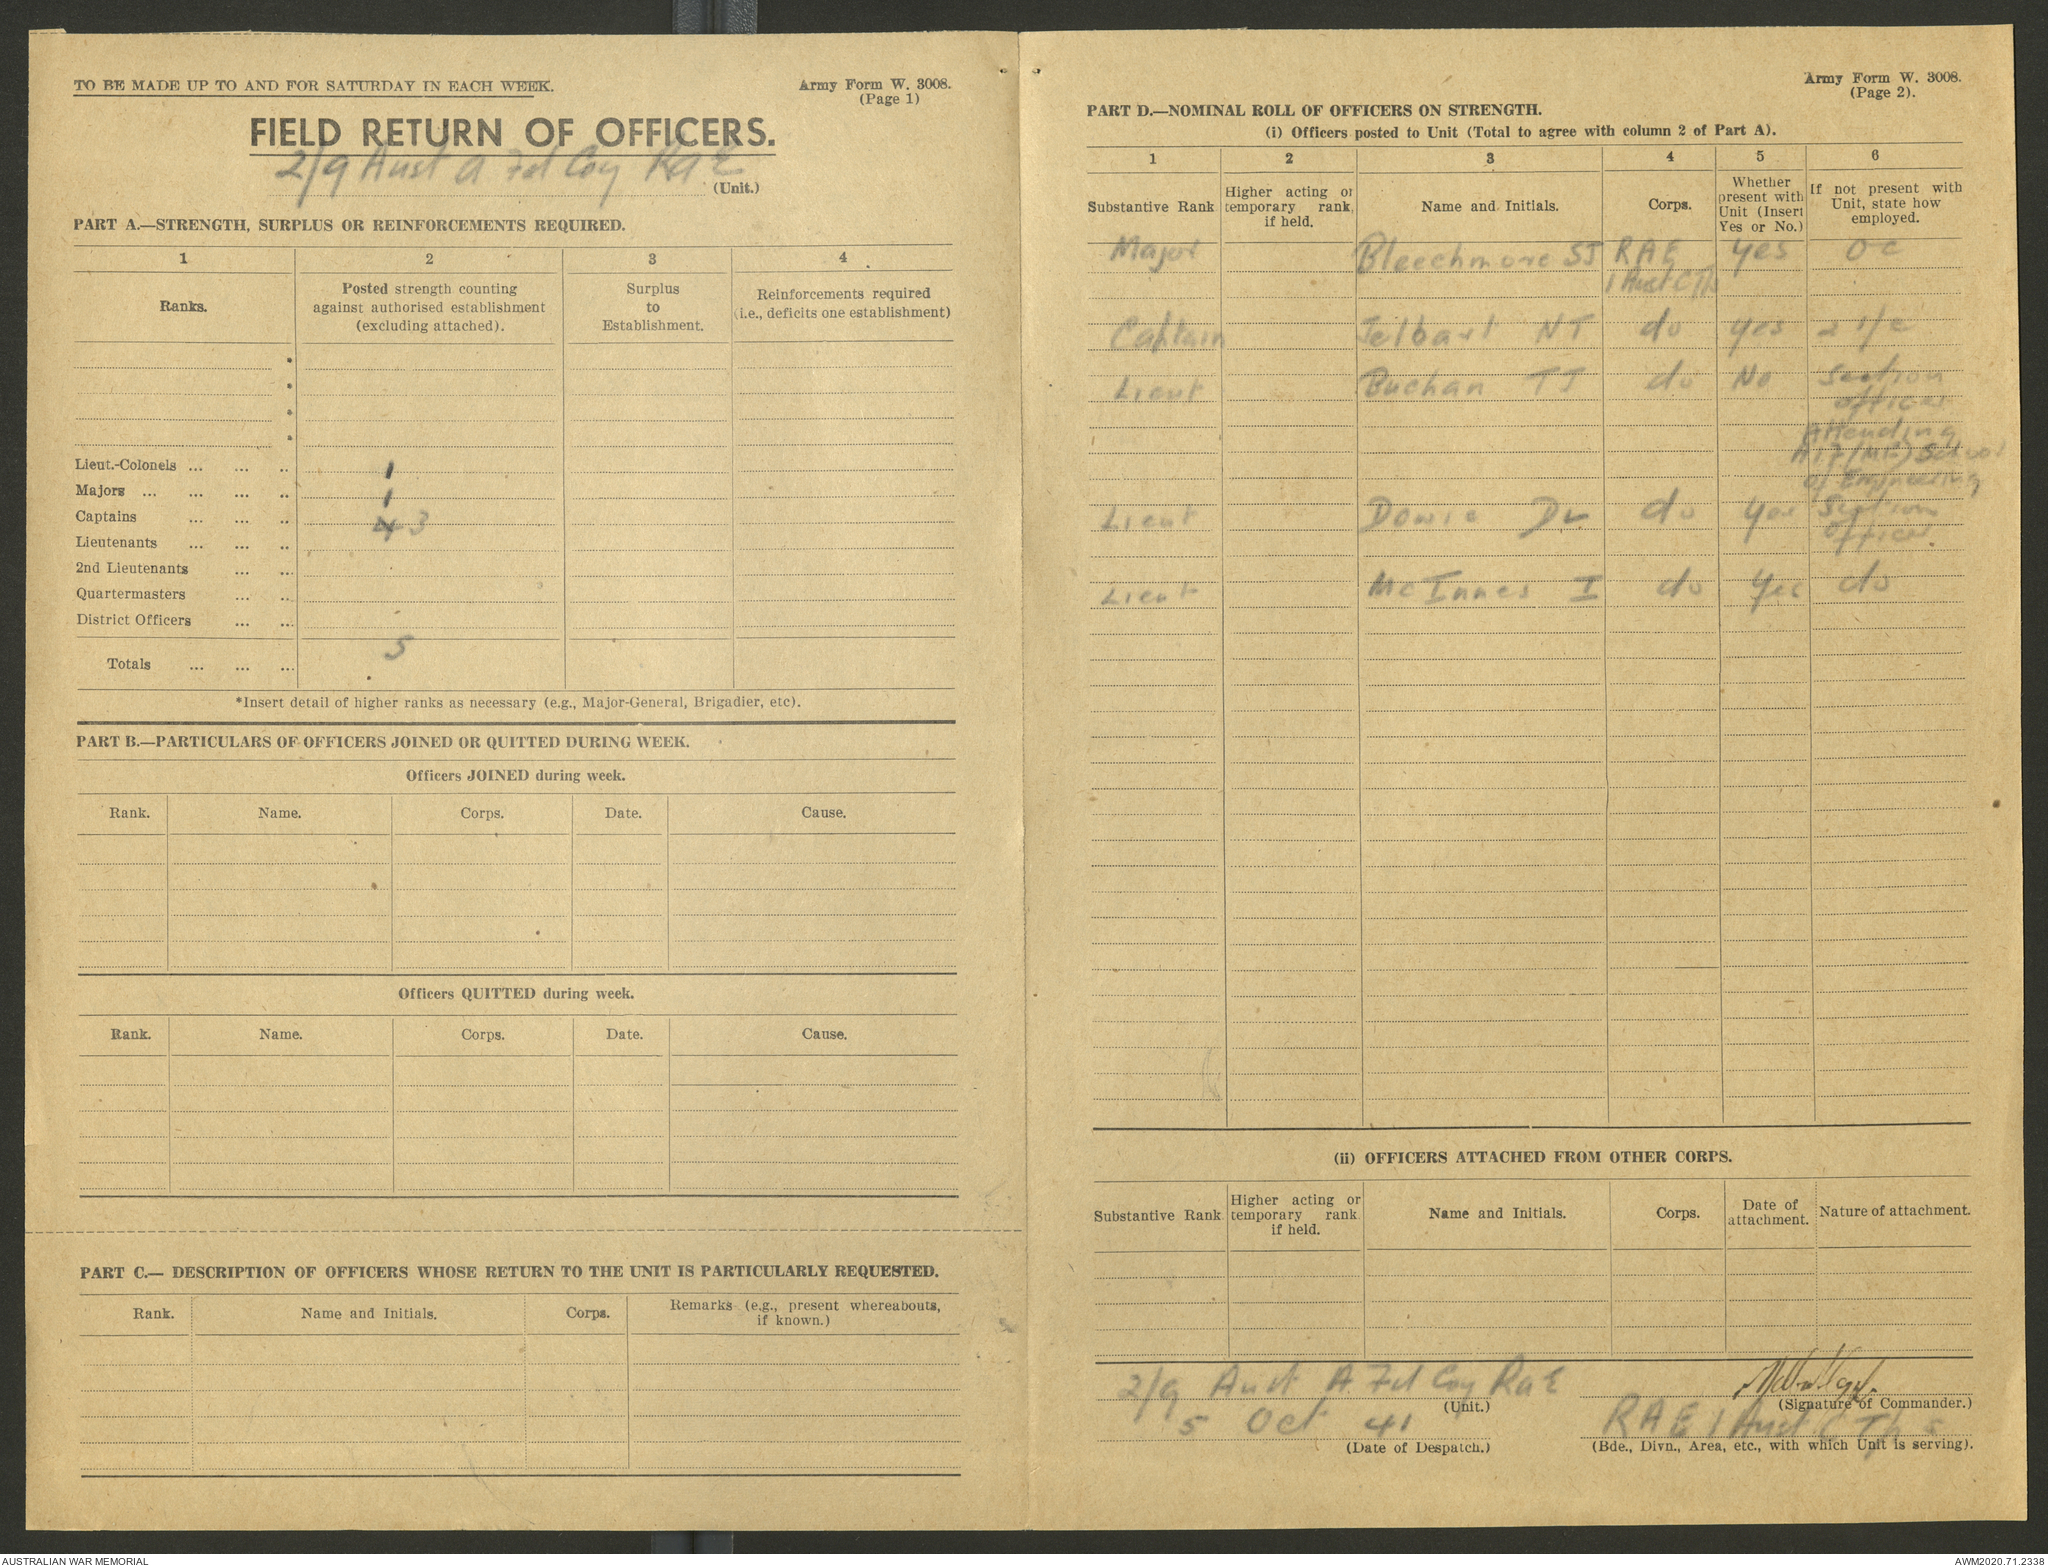 TO BE MADE UP TO AND FOR SATURDAY IN EACH WEEK.
Army Form W. 3008.
(Page 1)
FIELD RETURN OF OFFICERS.
2/9 Aust A Fd Coy RAE
(Unit.)
PART A.—STRENGTH, SURPLUS OR REINFORCEMENTS REQUIRED.
1 2 3 4
Ranks.
Posted strength counting
against authorised establishment
(excluding attached).
Surplus
to
Establishment.
Reinforcements required
(i.e., deficits one establishment)
*
*
*
*
Lieut.-Colonels ... ... .. 1
Majors ... ... ... .. 1
Captains ... ... .. 4 3
Lieutenants ... ... ..
2nd Lieutenants ... ...
Quartermasters ... ..
District Officers ... ...
Totals ... ... ... 5
*Insert detail of higher ranks as necessary (e.g., Major-General, Brigadier, etc).
PART B.—PARTICULARS OF OFFICERS JOINED OR QUITTED DURING WEEK.
Officers JOINED during week.
Rank. Name. Corps. Date. Cause.
Officers QUITTED during week.
Rank. Name. Corps. Date. Cause.
PART C.— DESCRIPTION OF OFFICERS WHOSE RETURN TO THE UNIT IS PARTICULARLY REQUESTED.
Rank. Name and Initials. Corps.
Remarks (e.g., present whereabouts,
if known.)
Army Form W. 3008.
(Page 2).
PART D.—NOMINAL ROLL OF OFFICERS ON STRENGTH.
(i) Officers posted to Unit (Total to agree with column 2 of Part A).
1 2 3 4 5 6
Substantive Rank
Higher acting or
temporary rank,
if held.
Name and Initials.
Corps.
Whether
present with
Unit (Insert
Yes or No.)
If not present with
Unit, state how
employed.
Major Bleechmore SJ RAE Yes OC
1 Aust C Tps
Captain Jelbart NT do Yes 2 i/c
Lieut Buchan TJ do No Section
officer
Attending
AIF (ME) School
of Engineering
Lieut Dowie DL do Yes Section
officer.
Lieut McInnes I do Yes do
(ii) OFFICERS ATTACHED FROM OTHER CORPS.
Substantive Rank
Higher acting or
temporary rank
if held.
Name and Initials.
Corps.
Date of
attachment.
Nature of attachment.
2/9 Aust A Fd Coy RAE
(Unit.)
(Signature of Commander.)
5 Oct 41
(Date of Despatch.)
RAE 1 Aust C Tps
(Bde., Divn., Area, etc., with which Unit is serving).
AUSTRALIAN WAR MEMORIAL
AWM2020.71.2338